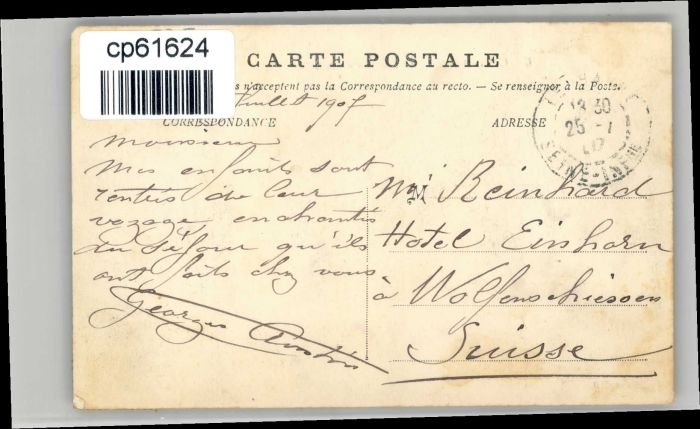 cp61624
CARTE POSTALE
s n'acceptent pas la Correspondance au recto. — Se renseigner à la Poste.
Juillet 1907
CORRESPONDANCE
ADRESSE
13 30
25 - 7
SEINE-INFRE
Monsieur
Mes enfants sont
rentrés de leur
voyage enchantés
du séjour qu'ils
ont faits chez vous
Georges
M Mr Reinhard
Hotel Einhorn
à Wolfenschiessen
Suisse